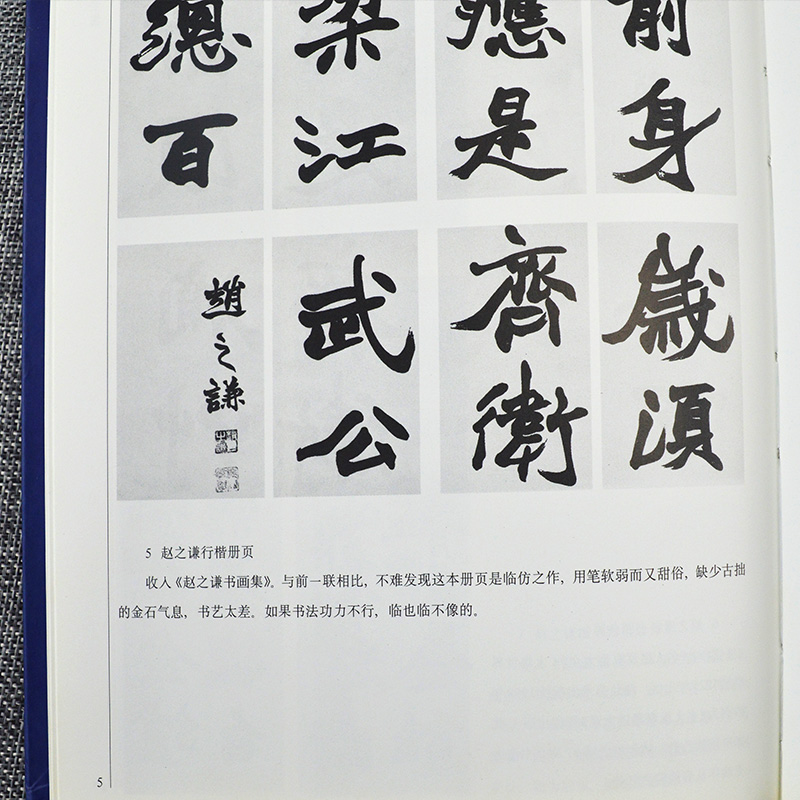 前身
應是
梁江
總百
歲湏
齊衛
武公
趙之謙
5 赵之谦行楷册页
收入《赵之谦书画集》。与前一联相比，不难发现这本册页是临仿之作，用笔软弱而又甜俗，缺少古拙
的金石气息，书艺太差。如果书法功力不行，临也临不像的。
5